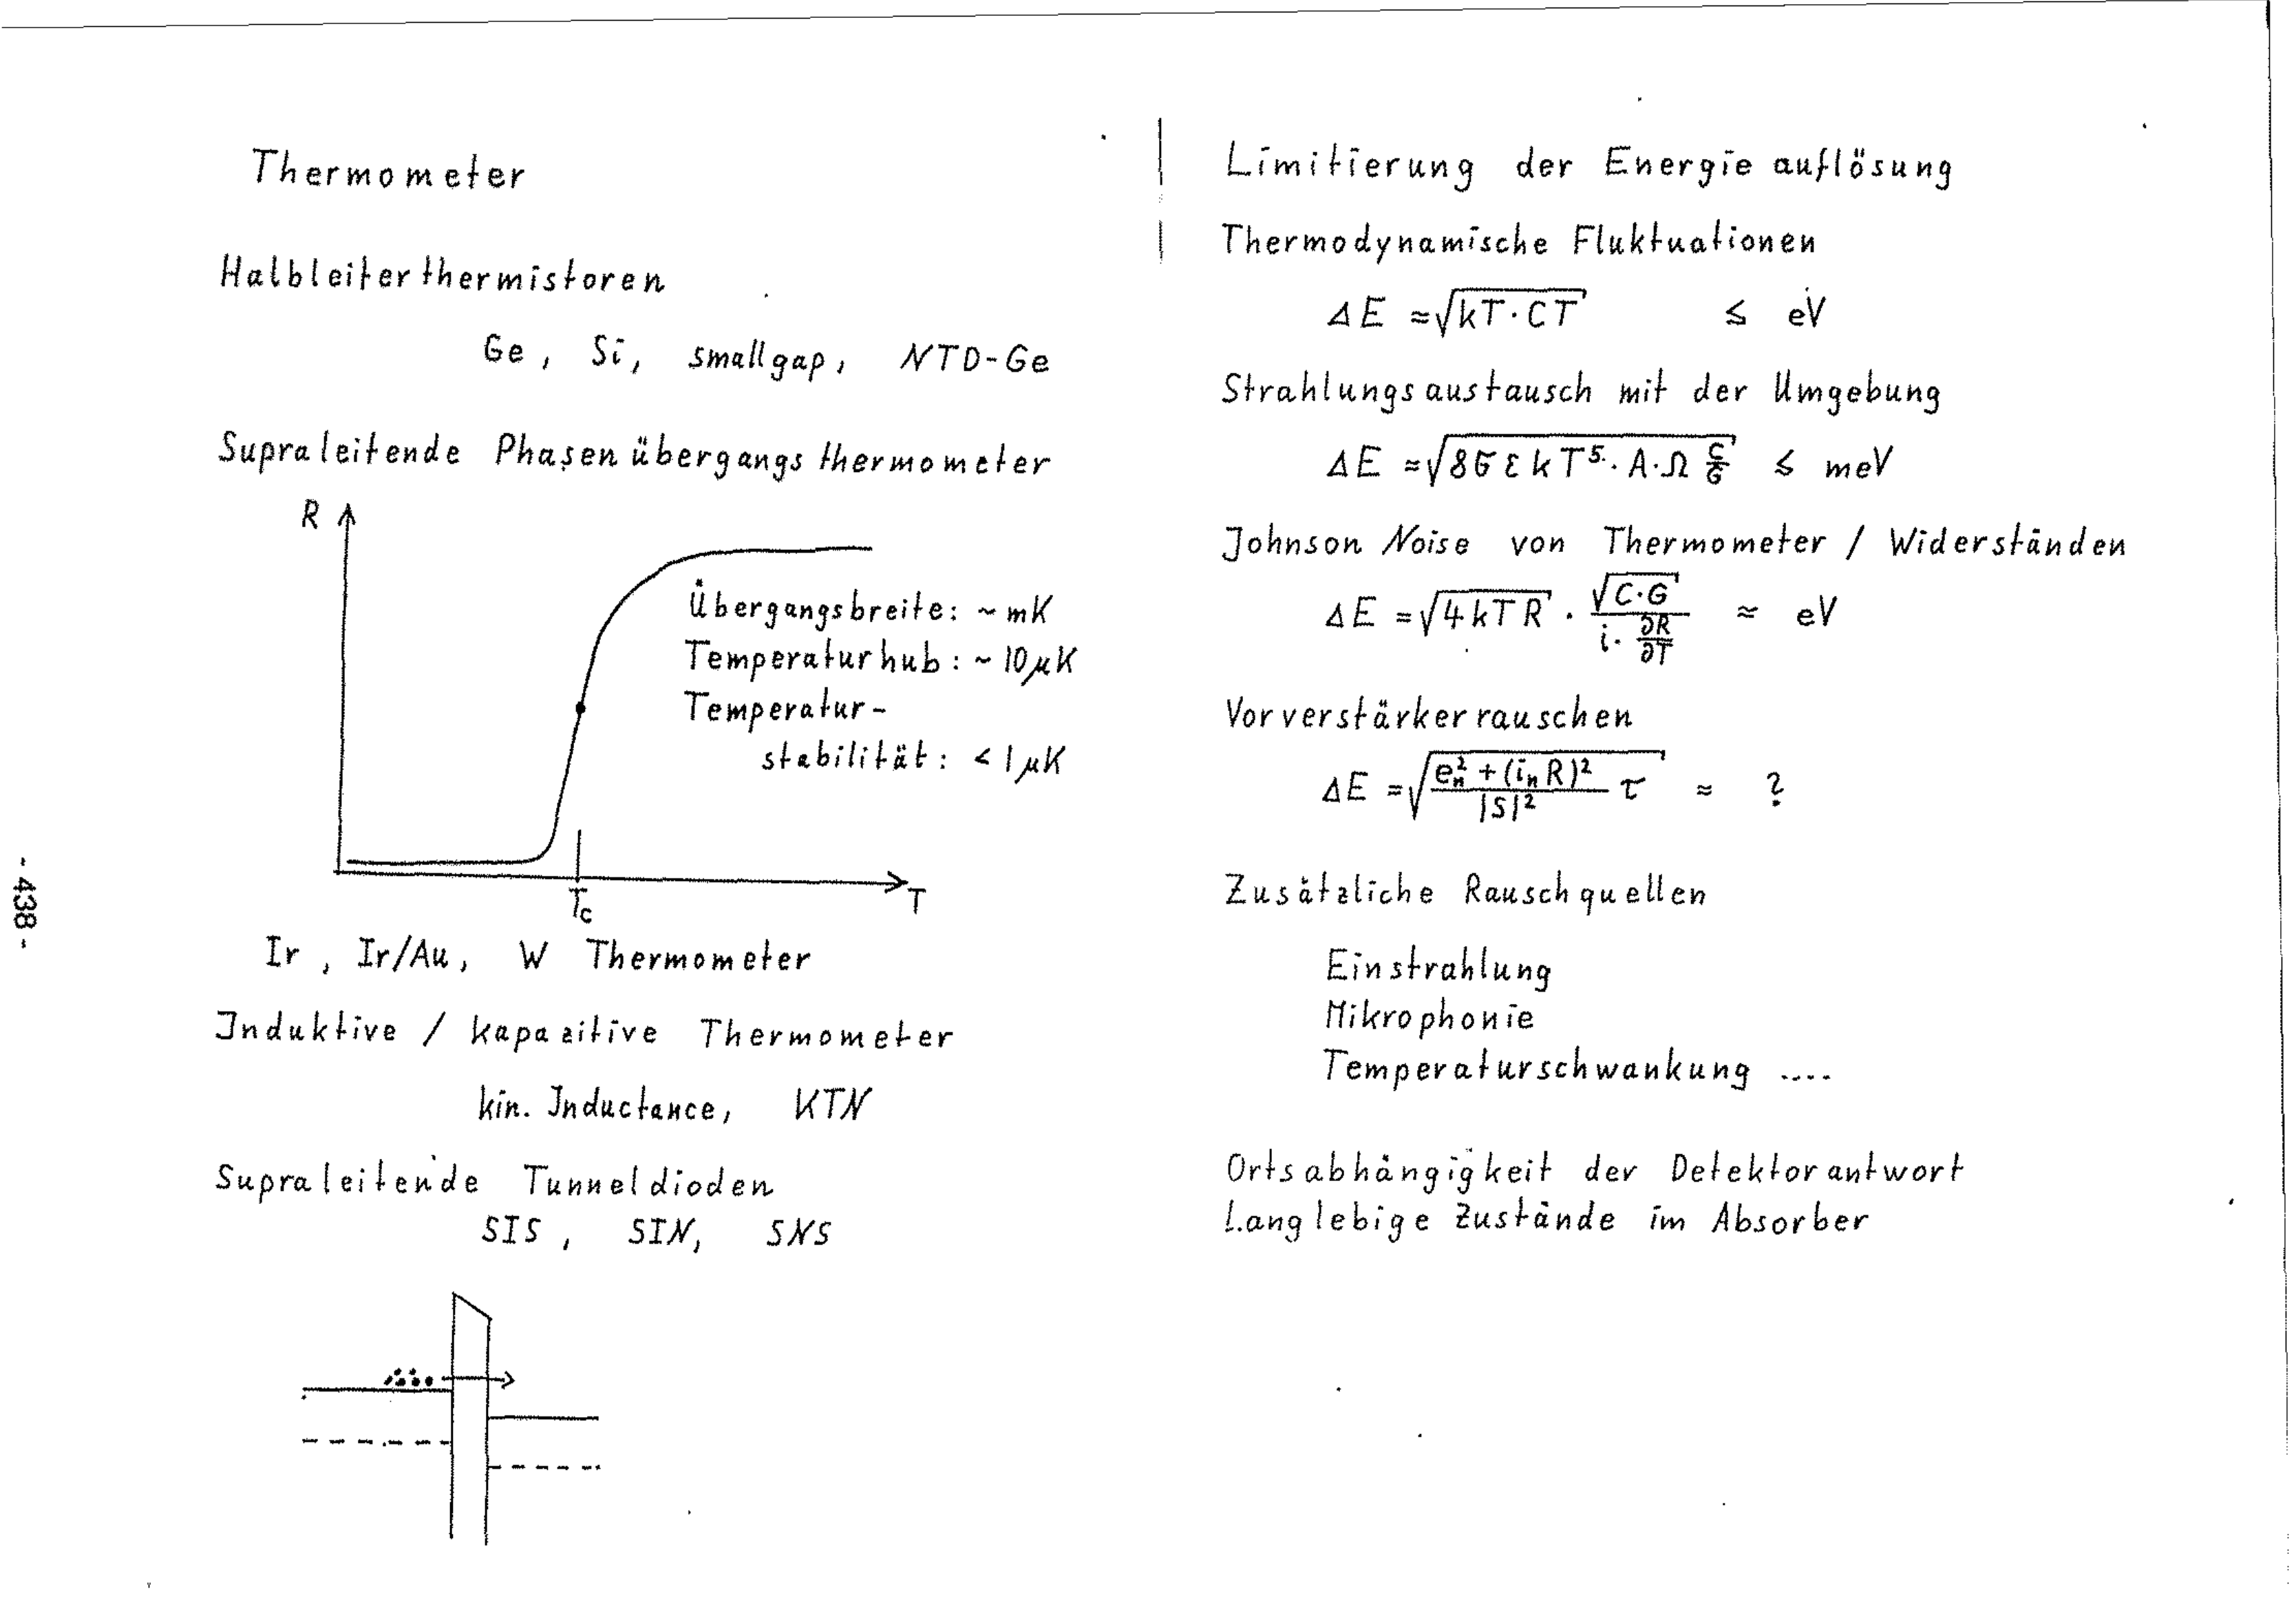 Thermometer
Halbleiterthermistoren
Ge, Si, smallgap, NTD-Ge
Supraleitende Phasenübergangsthermometer
R
Übergangsbreite: ~ mK
Temperaturhub: ~ 10 μK
Temperatur-
stabilität: < 1 μK
T_c
T
Ir, Ir/Au, W Thermometer
Induktive / kapazitive Thermometer
kin. Inductance, KTN
Supraleitende Tunneldioden
SIS, SIN, SNS
Limitierung der Energieauflösung
Thermodynamische Fluktuationen
ΔE ≈ √(kT · CT) ≲ eV
Strahlungsaustausch mit der Umgebung
ΔE ≈ √(8σεkT⁵ · A · Ω C/G) ≲ meV
Johnson Noise von Thermometer / Widerständen
ΔE = √(4kTR) · √(C·G) / (i · ∂R/∂T) ≈ eV
Vorverstärkerrauschen
ΔE = √((e_n² + (i_n R)²) / |S|² τ) ≈ ?
Zusätzliche Rauschquellen
Einstrahlung
Mikrophonie
Temperaturschwankung ....
Ortsabhängigkeit der Detektorantwort
Langlebige Zustände im Absorber
- 438 -